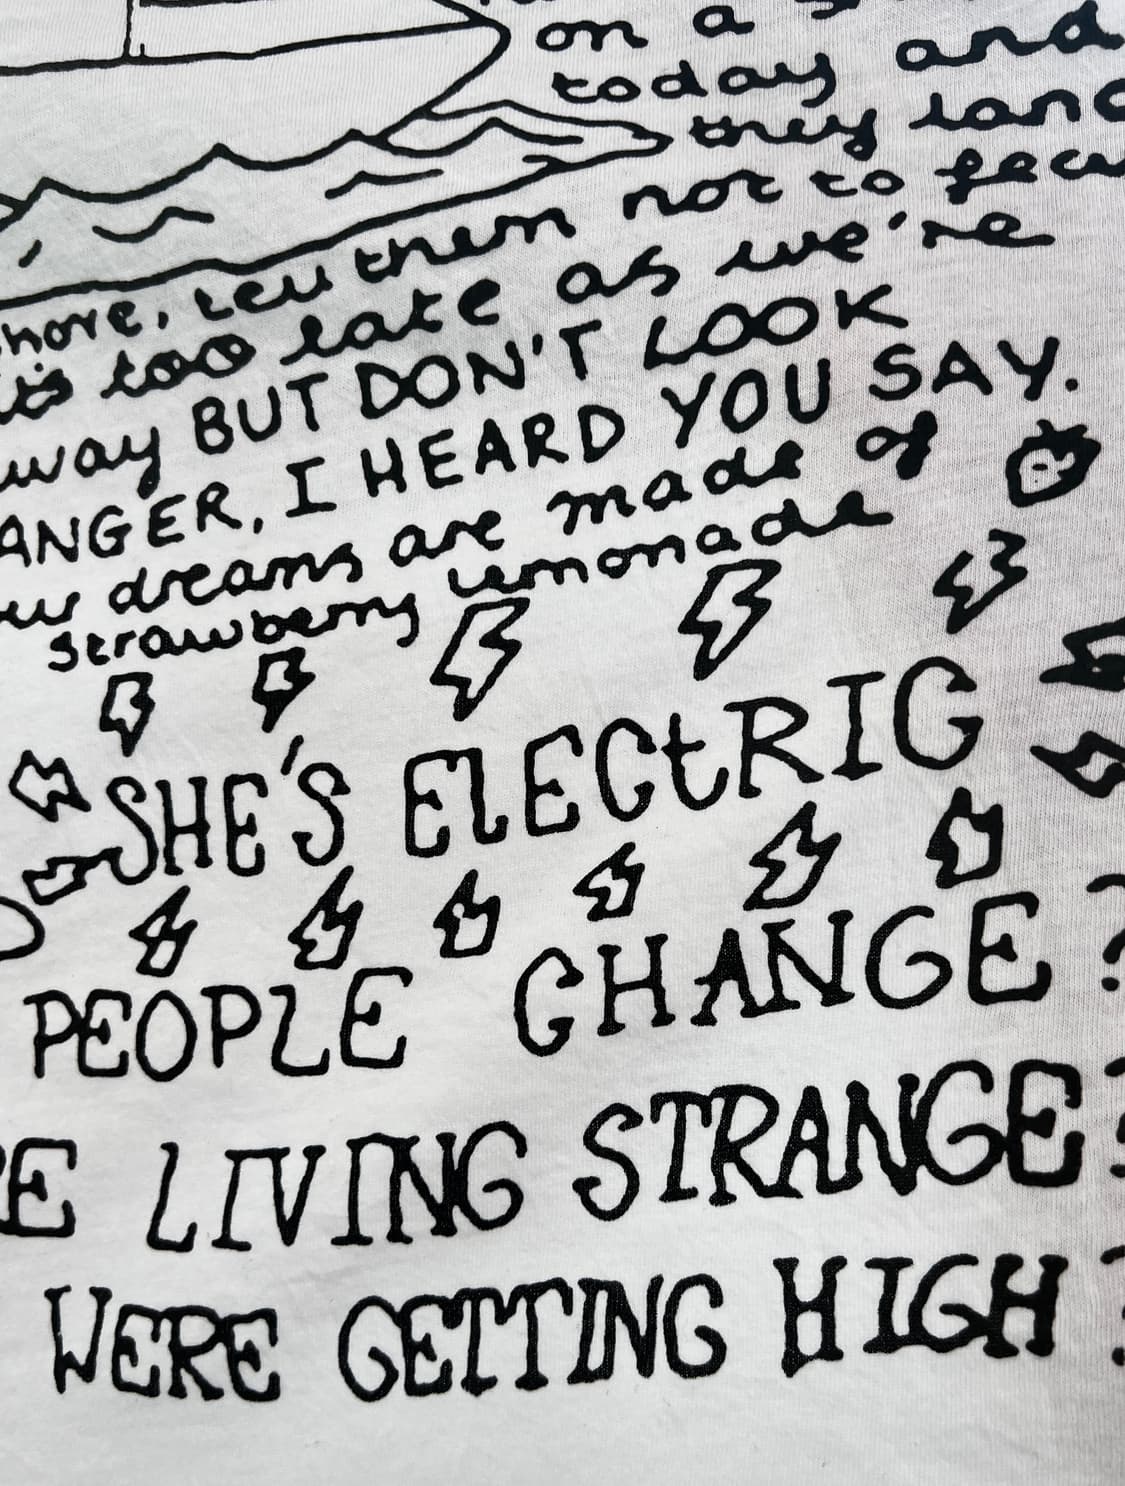 on a
today and
they land
hore, tell them not to fear
it's too late as we're
way BUT DON'T LOOK
ANGER, I HEARD YOU SAY.
dreams are made of
strawberry lemonade
SHE'S ElECtRIC
PEOPLE CHANGE?
E LIVING STRANGE?
WERE GETTING HIGH?